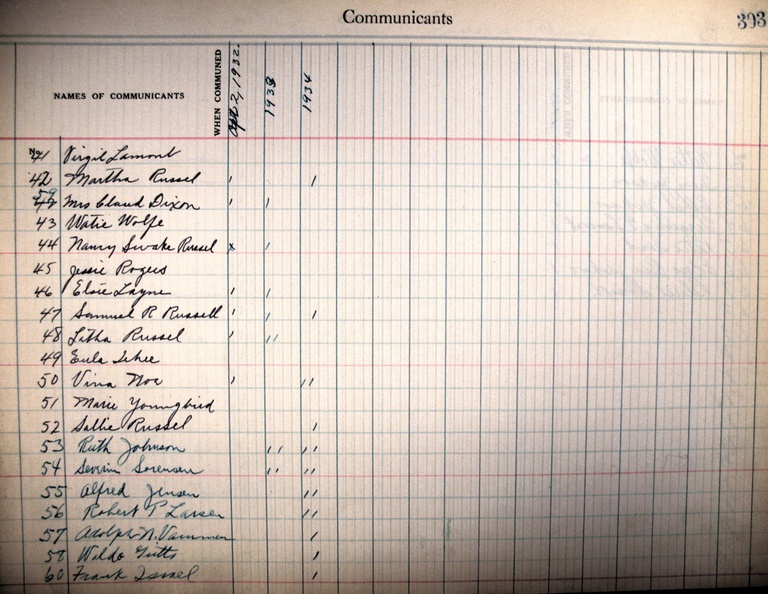 Communicants
303
NAMES OF COMMUNICANTS WHEN COMMUNED Apr 2, 1932. 1933 1934
No 41 Virgil Lamont
42 Martha Russel ' /
59 Mrs Claud Dixon ' /
43 Watie Wolfe
44 Nancy Swake Russel x /
45 Jessie Rogers
46 Elsie Layne ' /
47 Samuel R Russell ' / /
48 Litha Russel ' //
49 Eula
50 Vina Noe ' //
51 Marie Youngbird
52 Sallie Russel /
53 Ruth Johnson // //
54 Severin Sorensen // //
55 Alfred Jensen //
56 Robert P Larsen //
57 Adolph N. /
58 Waldo /
60 Frank Israel /